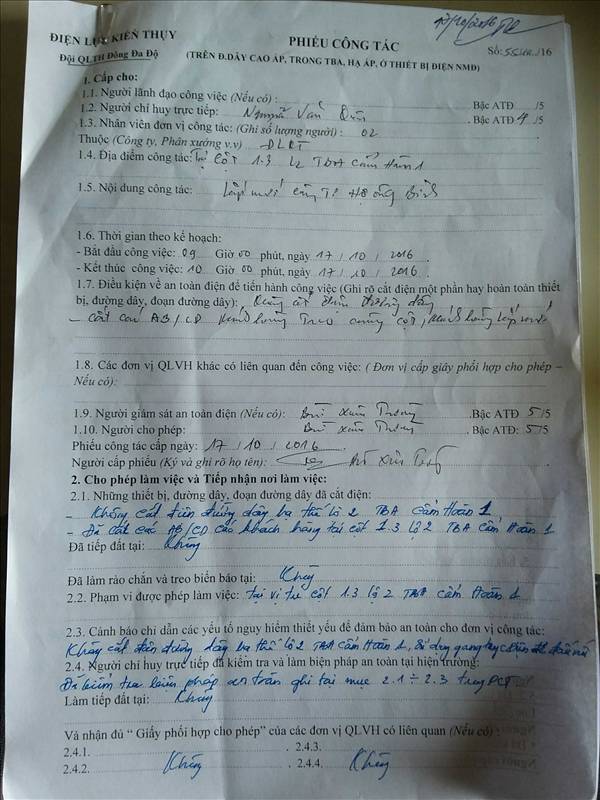 17/10/2016
ĐIỆN LỰC KIẾN THỤY
Đội QLTH Đông Đa Độ
PHIẾU CÔNG TÁC
Số: /16
(TRÊN Đ.DÂY CAO ÁP, TRONG TBA, HẠ ÁP, Ở THIẾT BỊ ĐIỆN NMĐ)
1. Cấp cho:
1.1. Người lãnh đạo công việc (Nếu có) : Bậc ATĐ /5
1.2. Người chỉ huy trực tiếp: Nguyễn Văn . Bậc ATĐ 4 /5
1.3. Nhân viên đơn vị công tác: (Ghi số lượng người) : 02
Thuộc (Công ty, Phân xưởng v.v) ĐLKT
1.4. Địa điểm công tác: Tại cột 1.3 L2 TBA Cẩm Hoàn 1
1.5. Nội dung công tác: Lắp mới công Tơ Hộ ông Bình
1.6. Thời gian theo kế hoạch:
- Bắt đầu công việc: 09 Giờ 00 phút, ngày 17 / 10 / 2016 .
- Kết thúc công việc: 10 Giờ 00 phút, ngày 17 / 10 / 2016 .
1.7. Điều kiện về an toàn điện để tiến hành công việc (Ghi rõ cắt điện một phần hay hoàn toàn thiết
bị, đường dây, đoạn đường dây): Không cắt điện đường dây
- Cắt các AB/CD khách hàng Treo cùng cột, khách hàng lắp mới
1.8. Các đơn vị QLVH khác có liên quan đến công việc: ( Đơn vị cấp giấy phối hợp cho phép –
Nếu có):
1.9. Người giám sát an toàn điện (Nếu có): Bùi Xuân Trường .Bậc ATĐ 5/5
1.10. Người cho phép: Bùi Xuân Trường . Bậc ATĐ: 5/5
Phiếu công tác cấp ngày: 17 / 10 / 2016
Người cấp phiếu (Ký và ghi rõ họ tên): Bùi Xuân
2. Cho phép làm việc và Tiếp nhận nơi làm việc:
2.1. Những thiết bị, đường dây, đoạn đường dây đã cắt điện:
- Không cắt điện đường dây hạ thế lộ 2 TBA Cẩm Hoàn 1
- Đã cắt các AB/CD các khách hàng tại cột 1.3 lộ 2 TBA Cẩm Hoàn 1
Đã tiếp đất tại: Không
Đã làm rào chắn và treo biển báo tại: Không
2.2. Phạm vi được phép làm việc: tại vị trí cột 1.3 lộ 2 TBA Cẩm Hoàn 1
2.3. Cảnh báo chỉ dẫn các yếu tố nguy hiểm thiết yếu để đảm bảo an toàn cho đơn vị công tác:
Không cắt điện đường dây hạ thế lộ 2 TBA Cẩm Hoàn 1, Sử dụng găng tay
2.4. Người chỉ huy trực tiếp đã kiểm tra và làm biện pháp an toàn tại hiện trường:
Đã kiểm tra biện pháp an toàn ghi tại mục 2.1 ÷ 2.3 trong PCT
Làm tiếp đất tại: Không
Và nhận đủ “ Giấy phối hợp cho phép” của các đơn vị QLVH có liên quan (Nếu có) :
2.4.1. . 2.4.3.
2.4.2. Không . 2.4.4. Không